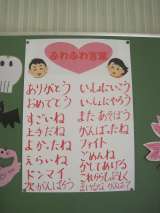 ふわふわ言葉
ありがとう
おめでとう
すごいね
上手だね
よかったね
えらいね
ドンマイ
次がんばろう
いっしょにいこう
いっしょにやろう
またあそぼう
がんばったね
ファイト
ごめんね
かしてあげる